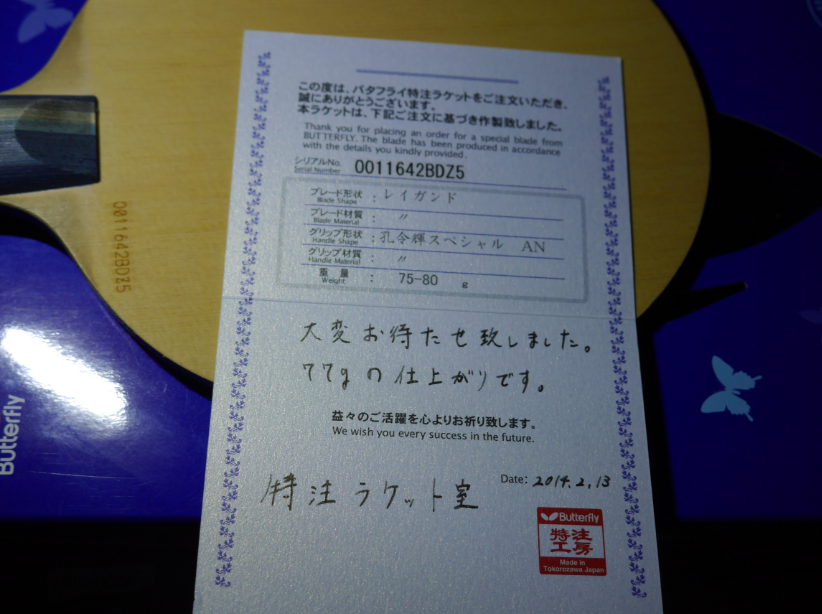 この度は、バタフライ特注ラケットをご注文いただき、
誠にありがとうございます。
本ラケットは、下記ご注文に基づき作製致しました。
Thank you for placing an order for a special blade from
BUTTERFLY. The blade has been produced in accordance
with the details you kindly provided.
シリアルNo. 0011642BDZ5
Serial Number
ブレード形状 : レイガンド
Blade Shape
ブレード材質 : 〃
Blade Material
グリップ形状 : 孔令輝スペシャル AN
Handle Shape
グリップ材質 : 〃
Handle Material
重量 : 75-80 g
Weight
大変お待たせ致しました。
77gの仕上がりです。
益々のご活躍を心よりお祈り致します。
We wish you every success in the future.
Date: 2014.2.13
特注ラケット室
Butterfly
特注
工房
Made in
Tokorozawa Japan
0011642BDZ5
Butterfly